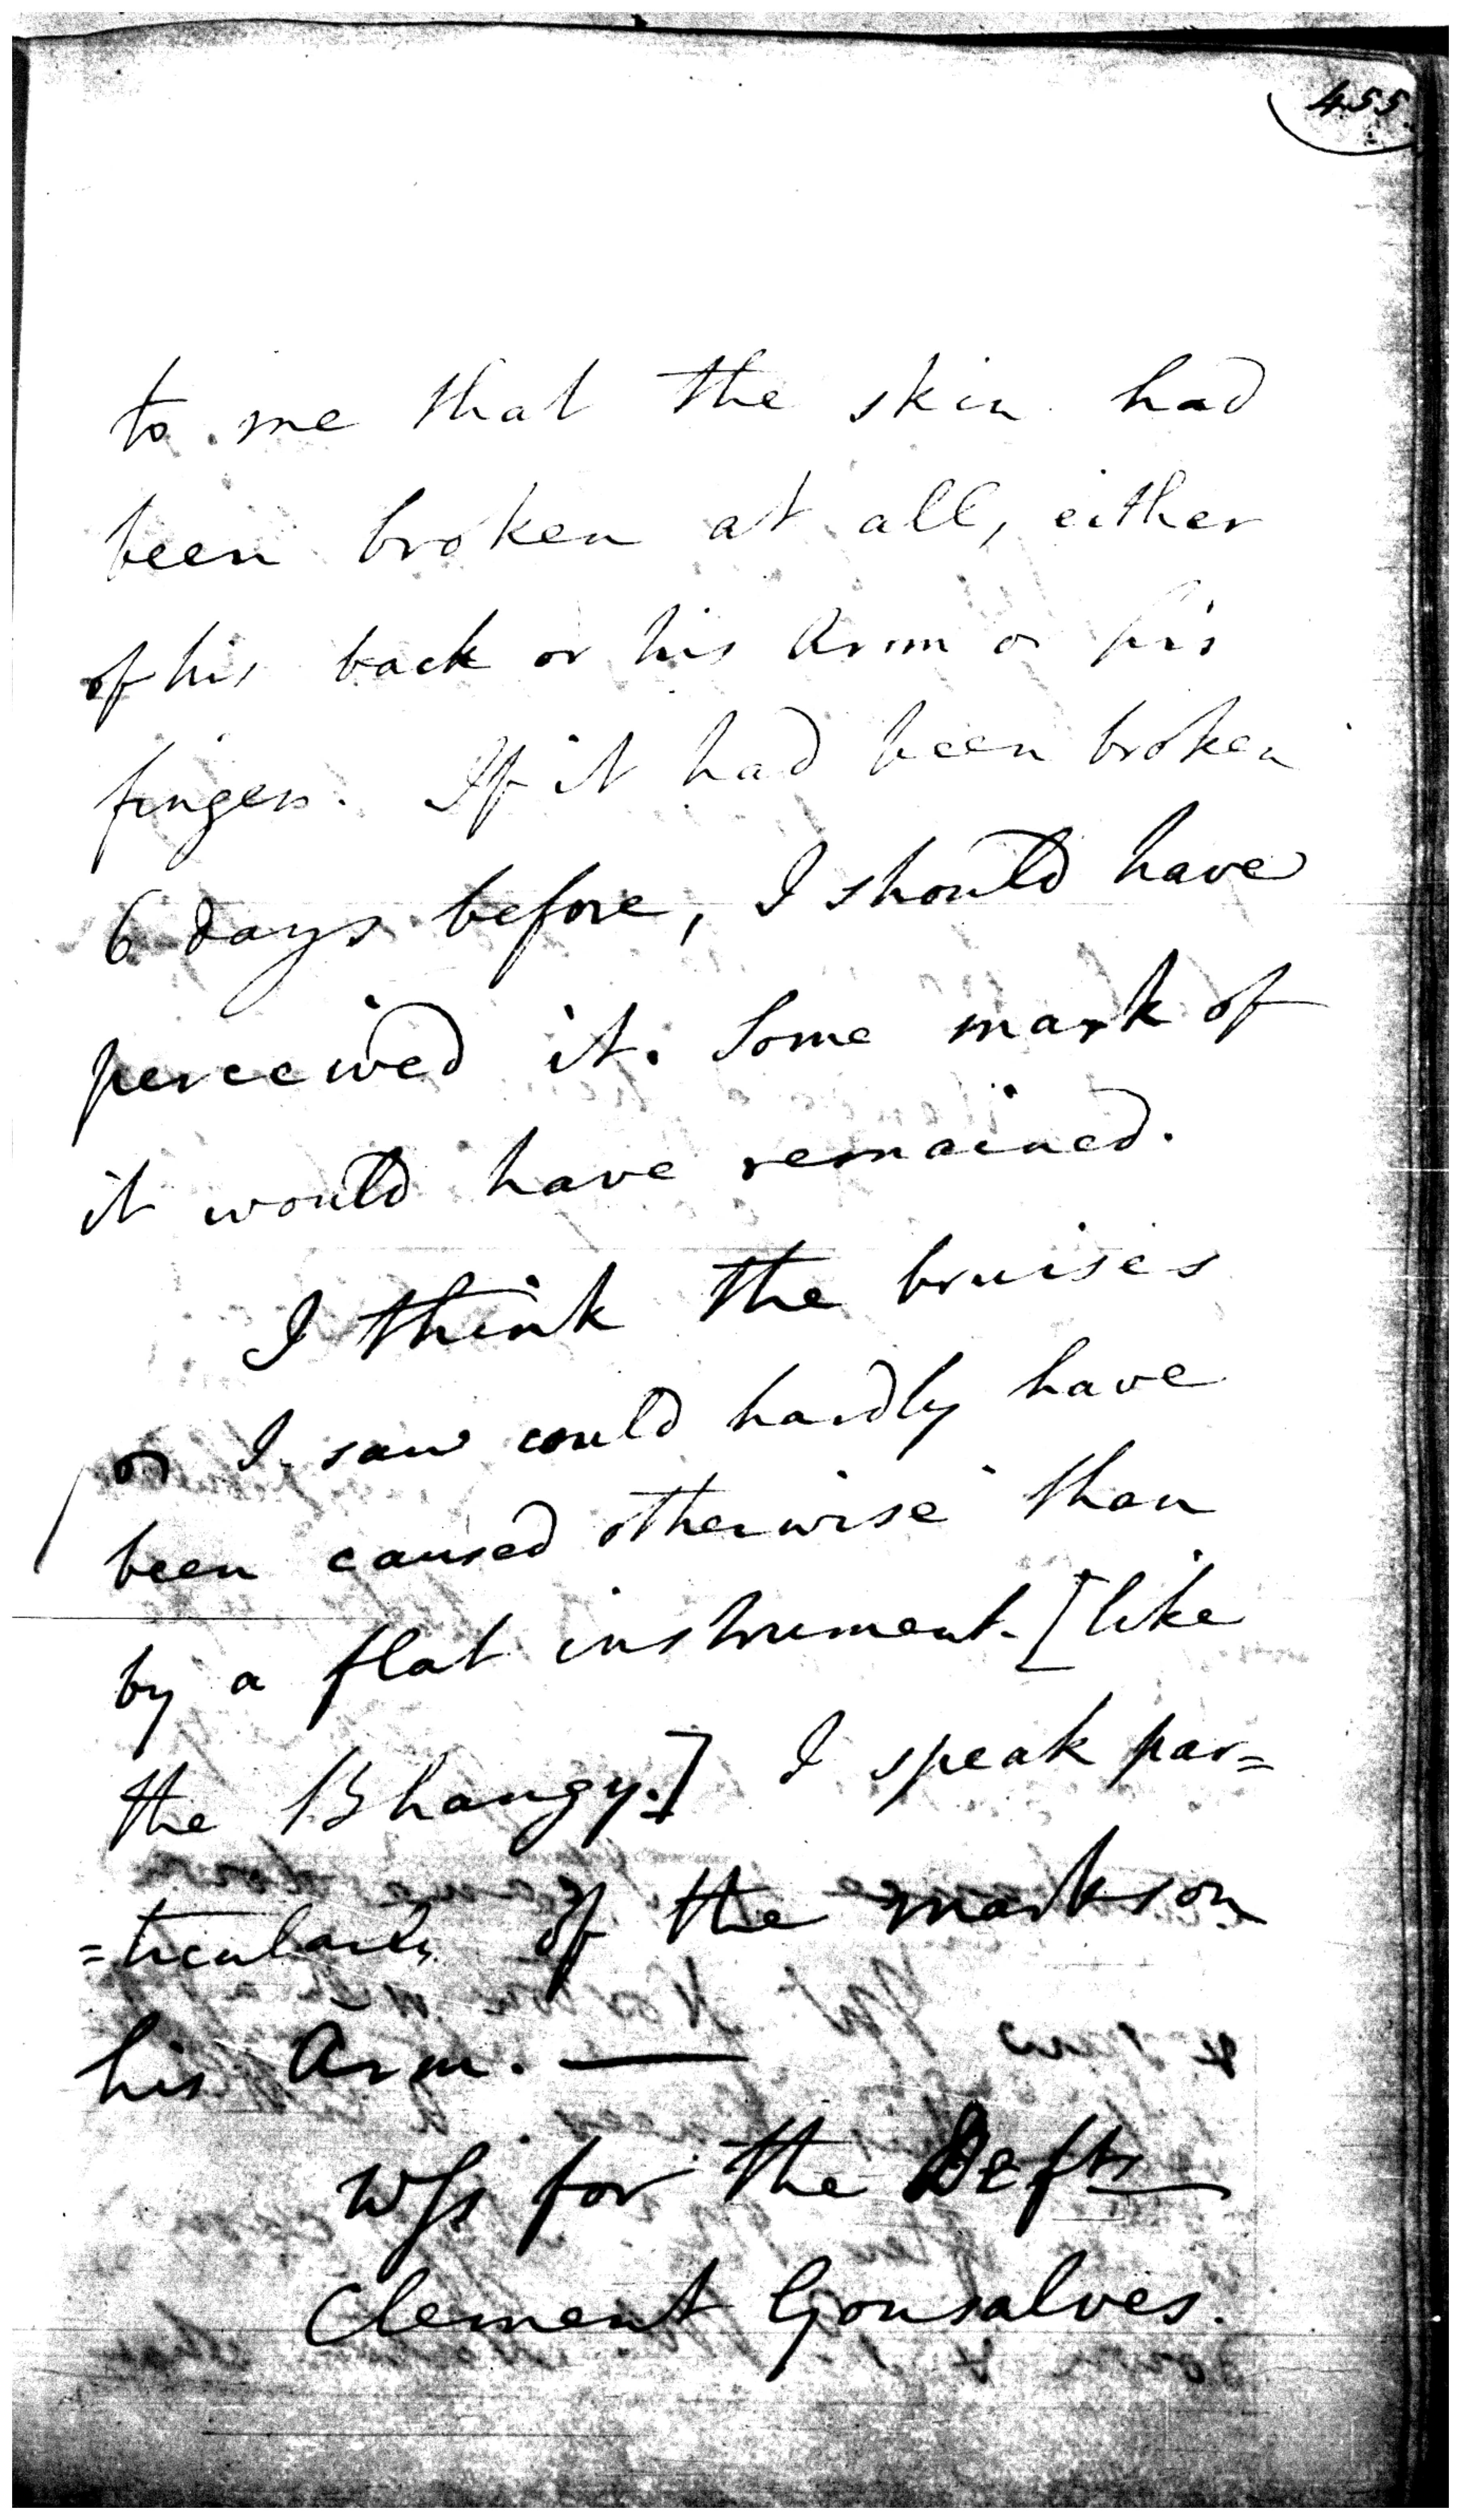 455.
to me that the skin had
been broken at all, either
of his back or his Arm or his
fingers. If it had been broken
6 days before, I should have
perceived it. Some mark of
it would have remained.
I think the bruises
I saw could hardly have
been caused otherwise than
by a flat instrument. [like
the Bhangy.] I speak par=
=ticularly of the marks on
his Arm. —
Wss for the Defts
Clement Gonsalves.